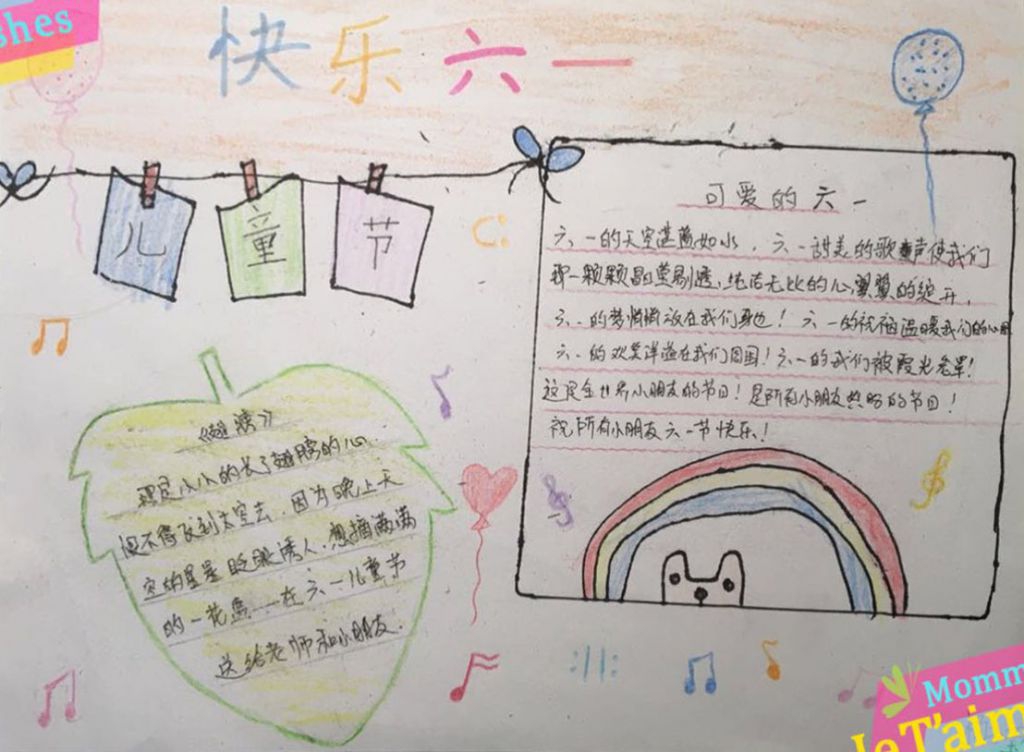 shes
快乐六一
儿童节
可爱的六一
六一的天空湛蓝如水，六一甜美的歌声使我们
那一颗颗晶莹剔透、纯洁无比的心翼翼的绽开，
六一的梦悄悄放在我们身边！六一的祝福温暖我们的心田
六一的欢笑洋溢在我们周围！六一的我们被霞光笼罩！
这是全世界小朋友的节日！是所有小朋友热盼的节日！
祝所有小朋友六一节快乐！
《翅膀》
我是小小的长了翅膀的心
恨不得飞到太空去，因为晚上天
空的星星眨眼诱人，想摘满满
的一花篮——在六一儿童节
送给老师和小朋友.
Momm
JeT'aim